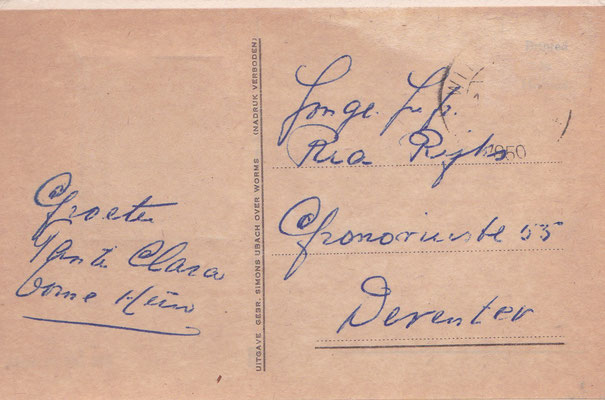 Groeten
Tante Clara
Oome Hein
UITGAVE GEBR. SIMONS UBACH OVER WORMS (NADRUK VERBODEN)
1950
Jonge. Juf.
Ria
Gronoviusstr 55
Deventer